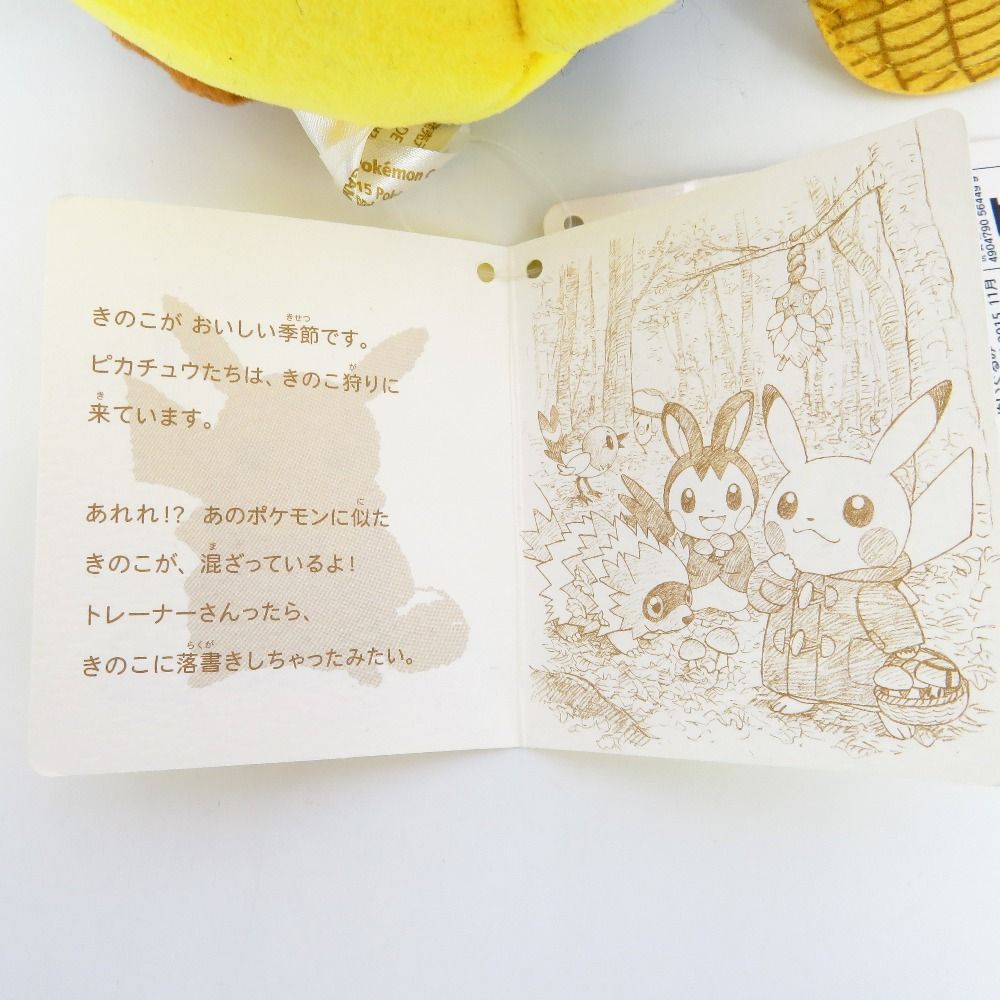 きのこが おいしい季節です。
ピカチュウたちは、きのこ狩りに
来ています。
あれれ!? あのポケモンに似た
きのこが、混ざっているよ!
トレーナーさんったら、
きのこに落書きしちゃったみたい。
okémon
15 Pok
4904790 56449
2015 11月